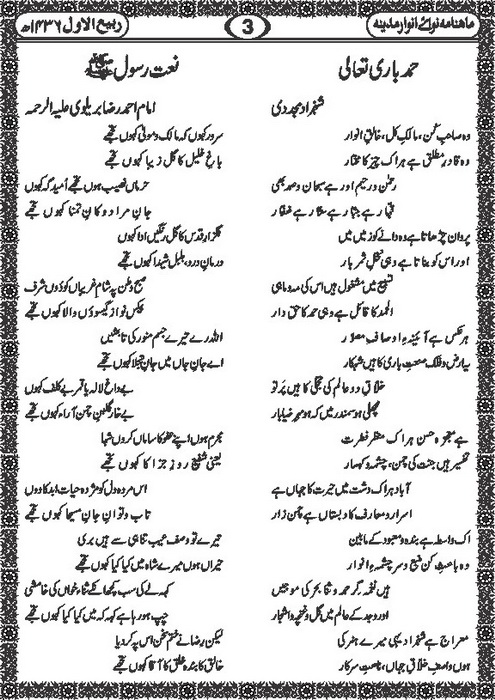 ماہنامہ نوائے انوار مدینہ
3
ربیع الاول ۱۴۳۶ھ
حمد باری تعالی
شہزاد مجددی
وہ صاحبِ کُن، مالکِ کل، خالقِ انوار
وہ قادرِ مطلق ہے ہر اک چیز کا مختار
رحمٰن و رحیم اور ہے سبحان و صمد بھی
قہار ہے جبار ہے ستار ہے غفار
پروان چڑھاتا ہے وہ دانے کو زمیں میں
اور اس کو بناتا ہے وہی نخلِ ثمر بار
تسبیح میں مشغول ہیں اس کی مہ و ماہی
الحمد کا قائل ہے وہی حمد کا حق دار
ہر عکس ہے آئینۂ اوصافِ مصور
یہ ارض و فلک صنعتِ باری کا ہیں شہکار
خلاقِ دو عالم کی تجلی کا ہیں پرتو
مچھلی ہو سمندر میں کہ ہو مہرِ ضیابار
ہے معجزۂ حسن ہر اک منظرِ فطرت
تفسیر ہیں جنت کی چمن، چشمہ و کہسار
آباد ہر اک دشت میں حیرت کا جہاں ہے
اسرار و معارف کا دبستاں ہے چمن زار
اک واسطہ ہے بندہ و معبود کے مابین
وہ باعثِ کن منبع و سرچشمۂ انوار
ہیں نغمہ گرِ حمد و ثنا بحر کی موجیں
اور وجد کے عالم میں گل و غنچہ و اشجار
معراج ہے شہزاد یہی میرے ہنر کی
ہوں واصفِ خلاقِ جہاں، بامدحتِ سرکار
نعت رسول ﷺ
امام احمد رضا بریلوی علیہ الرحمہ
سرور کہوں کہ مالک و مولیٰ کہوں تجھے
باغِ خلیل کا گلِ زیبا کہوں تجھے
حرماں نصیب ہوں تجھے اُمید گہ کہوں
جانِ مراد و کانِ تمنا کہوں تجھے
گلزارِ قدس کا گلِ رنگیں ادا کہوں
درمانِ دردِ بلبلِ شیدا کہوں تجھے
صبحِ وطن پہ شامِ غریباں کو دوں شرف
بیکس نواز گیسوؤں والا کہوں تجھے
اللہ رے تیرے جسمِ منور کی تابشیں
اے جانِ جاں میں جانِ تجلّا کہوں تجھے
بے داغ لالہ یا قمرِ بے کلف کہوں
بے خار گلبنِ چمن آراء کہوں تجھے
مجرم ہوں اپنے عفو کا ساماں کروں شہا
یعنی شفیع روزِ جزا کا کہوں تجھے
اس مردہ دل کو مژدہ حیاتِ ابد کا دوں
تاب و توانِ جانِ مسیحا کہوں تجھے
تیرے تو وصف عیبِ تناہی سے ہیں بری
حیراں ہوں میرے شاہ میں کیا کیا کہوں تجھے
کہہ لے گی سب کچھ ان کے ثناء خواں کی خامشی
چپ ہو رہا ہے کہہ کہ میں کیا کیا کہوں تجھے
لیکن رضا نے ختم سخن اس پہ کر دیا
خالق کا بندہ خلق کا آقا کہوں تجھے